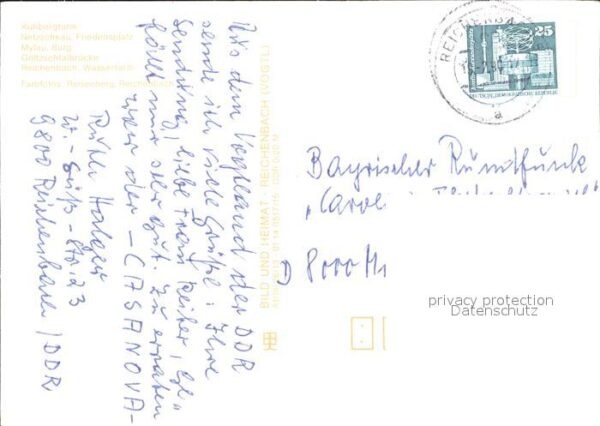 Kuhbergturm
Netzschkau, Friedensplatz
Mylau, Burg
Göltzschtalbrücke
Reichenbach, Wasserturm
Farbfotos: Reisenberg, Reichenbach
Aus dem Vogtland der DDR
sende ich viele Grüße. Ihre
Sendung, liebe Frau
mir sehr gut. Zu erraten
war der – CASANOVA –
Holger
Str. 23
9800 Reichenbach / DDR
BILD UND HEIMAT REICHENBACH (VOGTL)
REICHENBA
25
DEUTSCHE DEMOKRATISCHE REPUBLIK
a
Bayrischer Rundfunk
„Carol
D 8000 M
privacy protection
Datenschutz